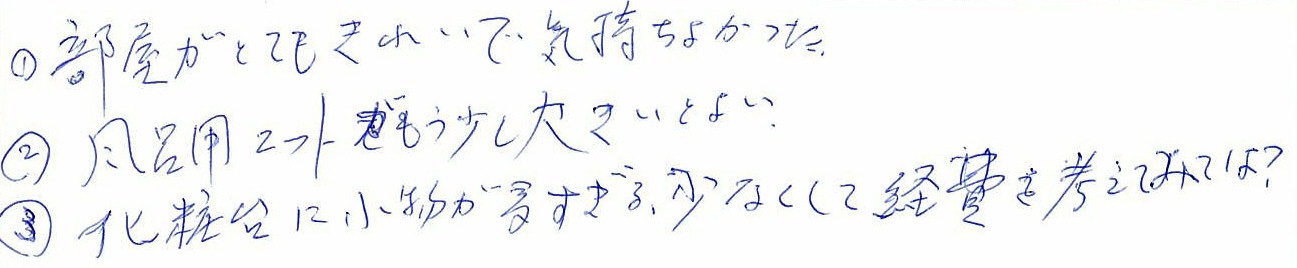 ① 部屋がとてもきれいで気持ちよかった。
② 風呂用マットがもう少し大きいとよい。
③ 化粧台に小物が多すぎる、少なくして経費を考えてみては?